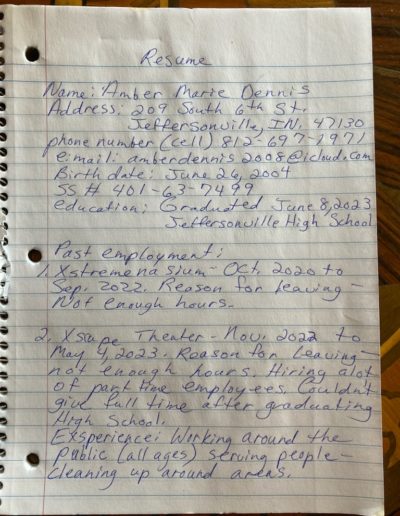 Resume
Name: Amber Marie Dennis
Address: 209 South 6th St.
Jeffersonville, IN. 47130
phone number (cell) 812-697-1971
e:mail: amberdennis2008@icloud.com
Birthdate: June 26, 2004
SS # 401-63-7499
education: Graduated June 8, 2023
Jeffersonville High School
Past employment:
1. Xstremenasium - Oct. 2020 to
Sep. 2022. Reason for leaving -
Not enough hours.
2. Xscape Theater - Nov. 2022 to
May 4, 2023. Reason for Leaving -
not enough hours. Hiring alot
of part time employees. Couldn't
give full time after graduating
High School.
Exsperience: Working around the
public (all ages) serving people -
cleaning up around areas.